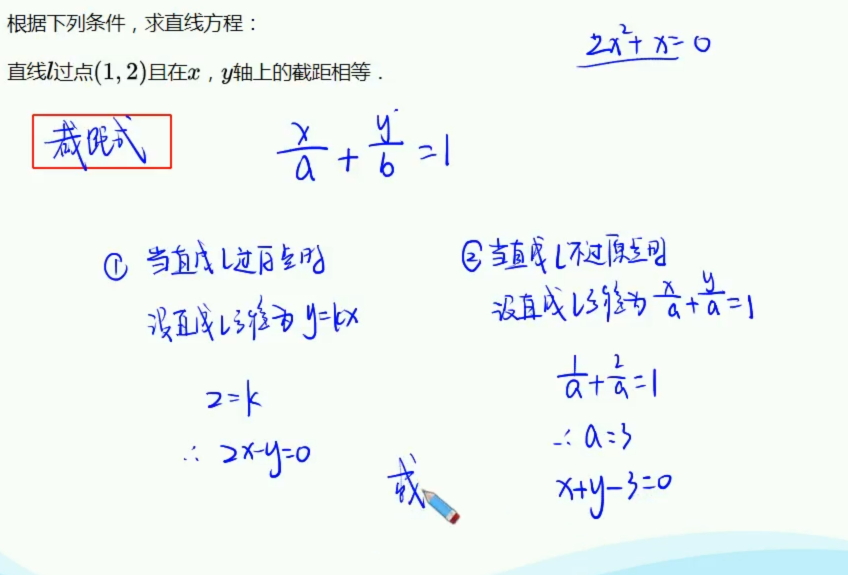 根据下列条件，求直线方程：
2x²+x=0
直线l过点(1,2)且在x，y轴上的截距相等．
截距式
x/a + y/b = 1
① 当直线l过原点时
设直线l方程为 y=kx
2=k
∴ 2x-y=0
或
② 当直线l不过原点时
设直线l方程为 x/a + y/a = 1
1/a + 2/a = 1
∴ a=3
x+y-3=0